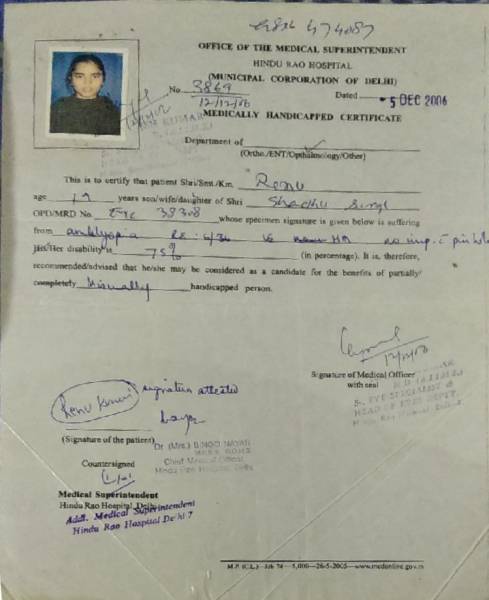 OFFICE OF THE MEDICAL SUPERINTENDENT
HINDU RAO HOSPITAL
(MUNICIPAL CORPORATION OF DELHI)
No. 3869 Dated - 5 DEC 2006
12/12/06
MEDICALLY HANDICAPPED CERTIFICATE
Department of
(Ortho./ENT/Opthalmology/Other)
This is to certify that patient Shri/Smt./Km. Renu
age 19 years son/wife/daughter of Shri Singh
OPD/MRD No. Eye 38308 whose specimen signature is given below is suffering
from amblyopia RE: 6/36
His/Her disability is 75% (in percentage). It is, therefore,
recommended/advised that he/she may be considered as a candidate for the benefits of partially/
completely Visually handicapped person.
Signature of Medical Officer
with seal
Sr. EYE SPECIALIST &
HEAD OF EYES DEPTT.
Hindu Rao Hospital Delhi
Renu Kumari signature attested
(Signature of the patient)
Dr (Mrs.) BINOO NAYAR
Chief Medical Officer
Hindu Rao Hospital, Delhi
Countersigned
Medical Superintendent
Hindu Rao Hospital, Delhi
Addl. Medical Superintendent
Hindu Rao Hospital Delhi-7
M.P. (C.L.)—Job 74—1,000—26-5-2005—www.medonline.gov.in